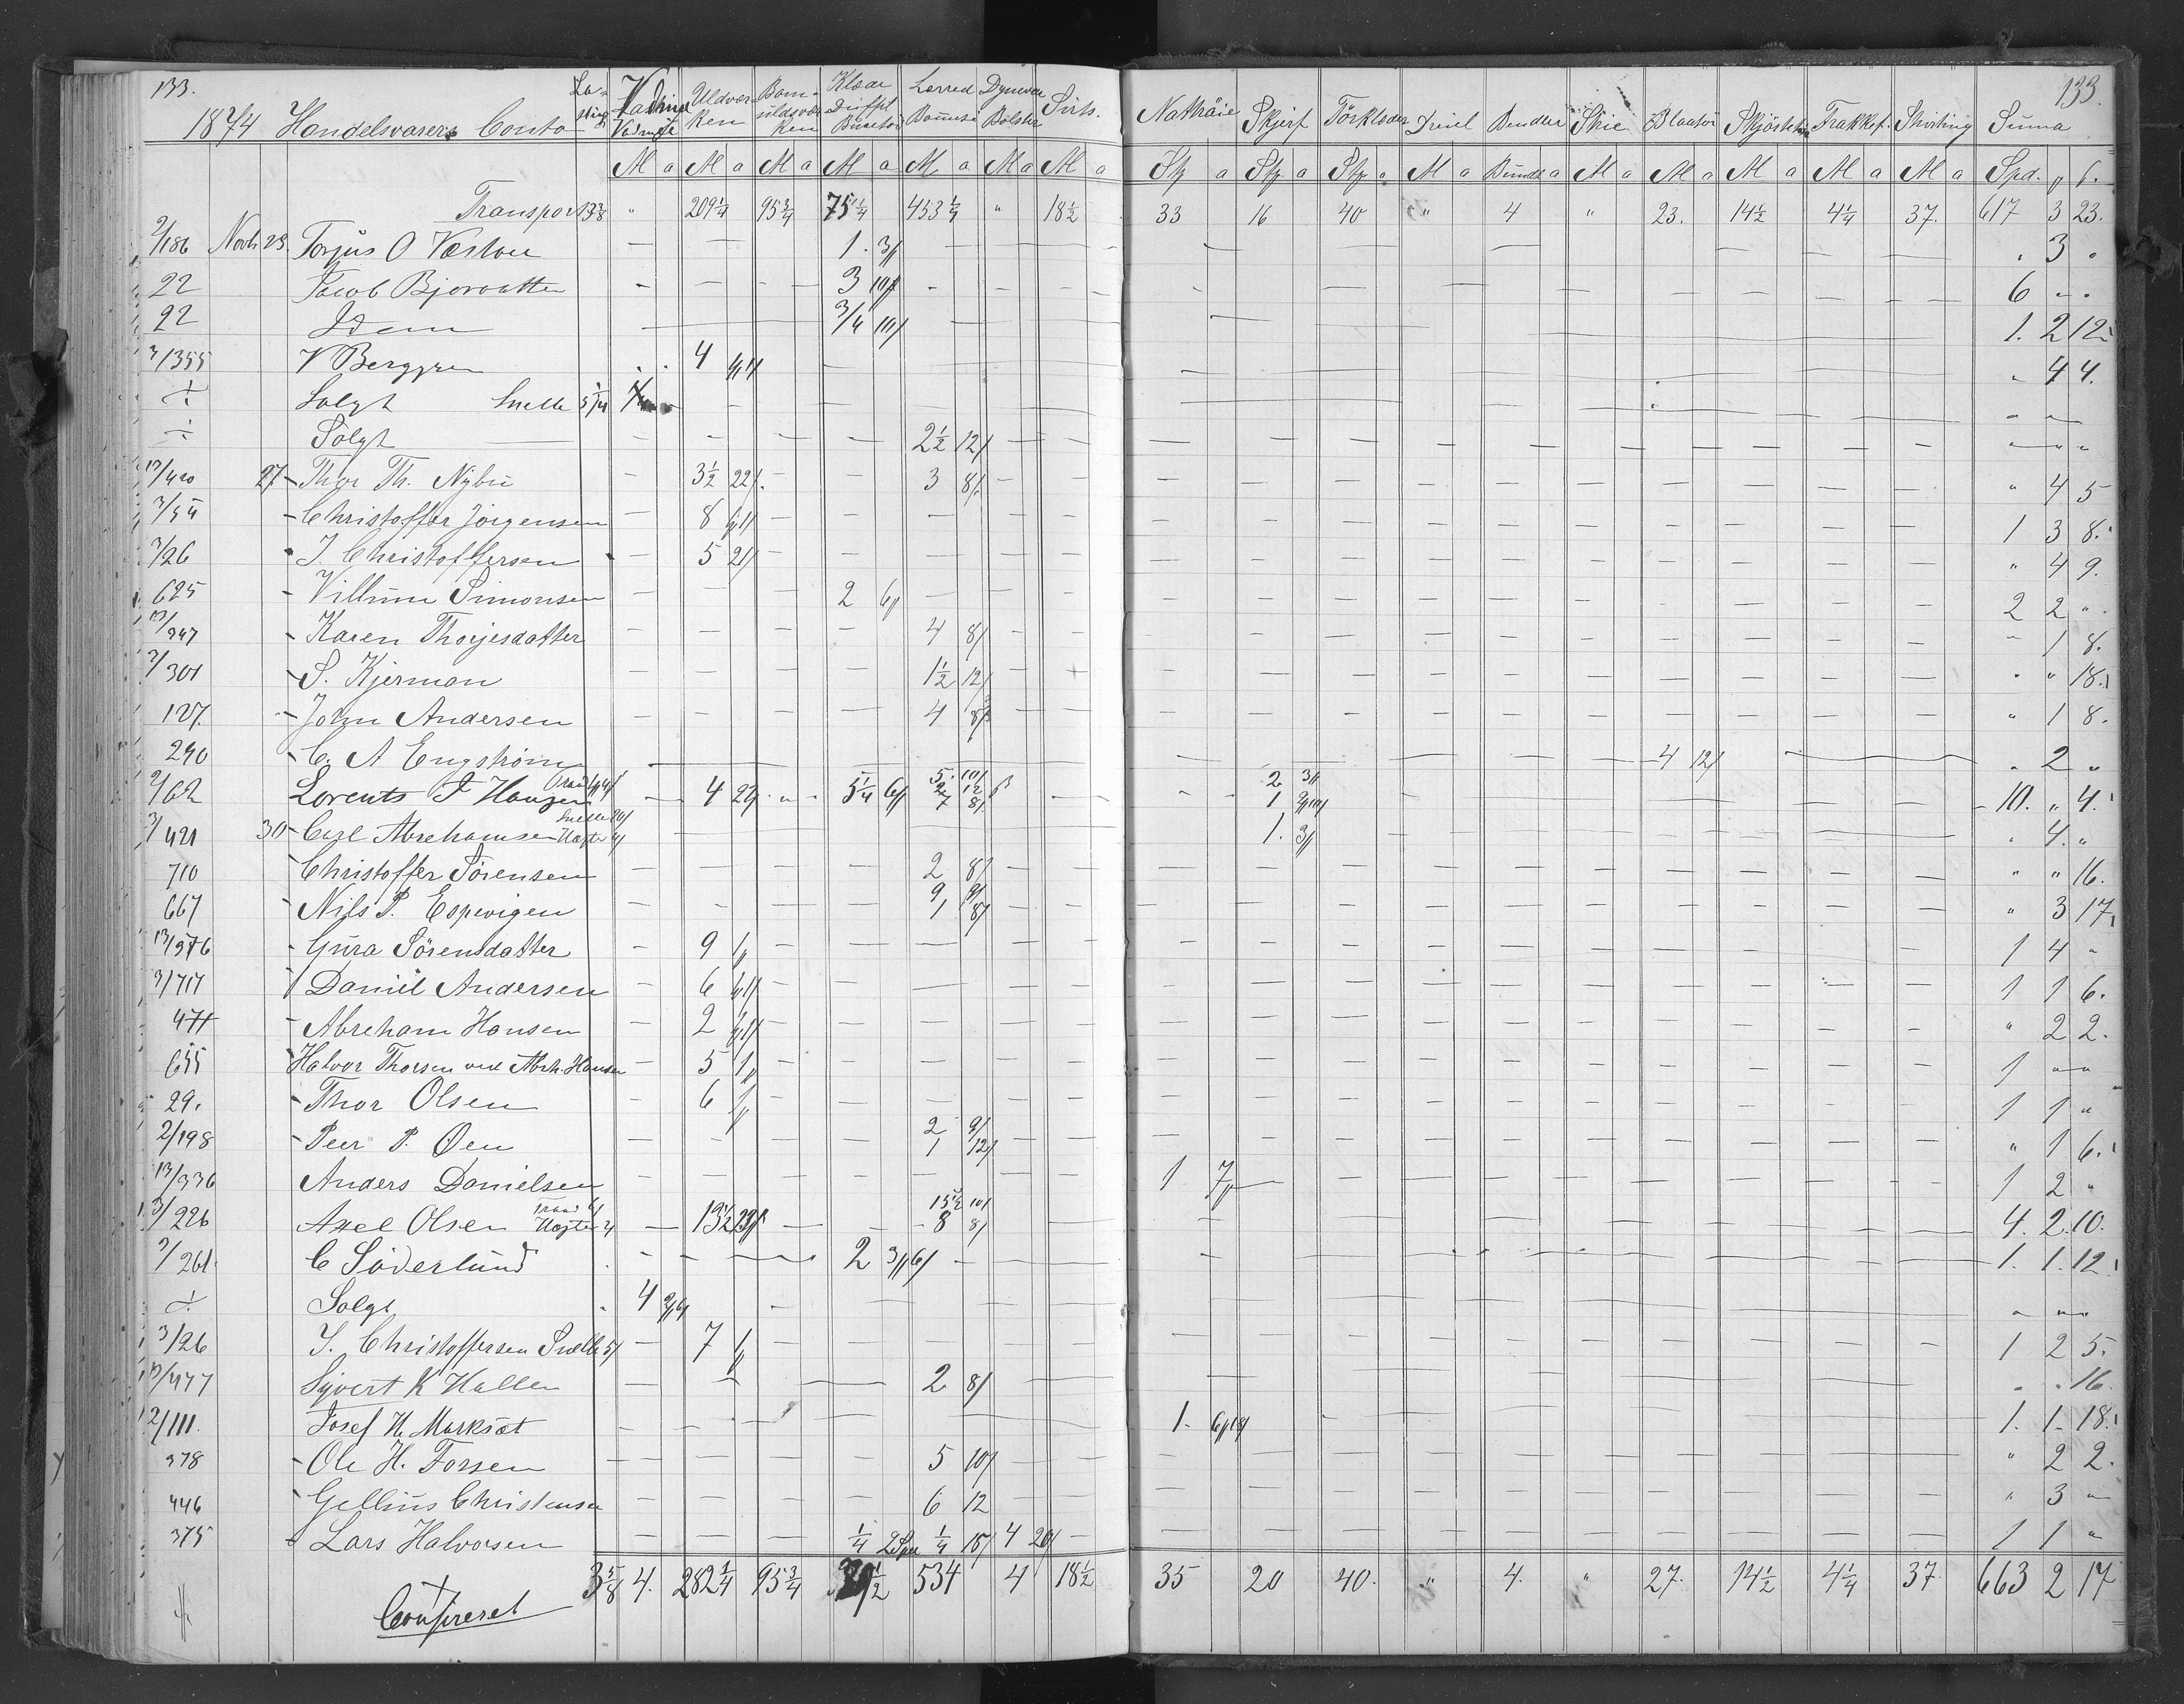 133. 133.
1874 Handelsvarers Conto La- sting Vadmel Uldvar- ken Bom- uldsvar- ken Klæde Diffel Buxetøi Lerred Bomuld Dynevar Bolster Sirts. Nattrøie Skjerf Törklæder Dreiel Bendler Strie Blaatøi Skjörtetøi Frakkef. Shirting Summa
M a M a M a M a M a M a M a St a St a St a M a Bundt a M a M a M a M a M a Spd. ₰ ß.
Transport 3 3/8 " 209 1/4 95 3/4 75 1/4 453 1/4 " 18 1/2 33 16 40 " 4 " 23. 14 1/2 4 1/4 37. 617 3 23.
2/186 Novb 23. Torjus O Vestøen 1. 3// . 3 "
22 Jacob Bjorvatten 3 10/ 6 " "
22 Idem 3/4 10/ 1. 2 12
3/355 V Berggren 4 " 4 4.
÷ Solgt Snelle 5/ 1/4 " "
÷ Solgt 2 1/2 12/ " " "
13/420 27 - Thor Th. Nybu 3 1/2 22/ 3 8/ " 4 5
3/54 - Christoffer Jörgensen 8 1 3 8.
3/26 - J. Christoffersen 5 21/ " 4 9.
625 - Villum Simonsen 2 6// 2 2 "
13/347 - Karen Thorjesdatter 4 8/ " 1 8.
3/301 - S. Kjerman 1 1/2 12/ " " 18.
127. - John Andersen 4 8/ " 1 8.
290 - C. A Engström 4 12/ " 2 "
2/62 Lorents P Hansen Traad 4/ 4 22/ 5 1/4 6// 5. 10/ 2 12 7 8/ 2 3// 1 10. " 4.
3/421 30 - Carl Abrehamsen Snelle 20/ Hægter 4/ 1. 3// . 4. "
710 - Christoffer Sörensen 2 8/ " " 16.
667 - Nils P. Espevigen 9 9/ 1 8/ " 3 17
13/376 - Gura Sörensdatter 9 1// 1 4 "
3/717 - Daniel Andersen 6 1 1 6.
471 - Abreham Hansen 2 " 2 2.
655 Halvor Thorsen ved Abrh. Hansen 5 1// 1 " "
29. - Thor Olsen 6 1// 1 1 "
2/198 - Peer P. Øen 2 9/ 1 12/ " 1 6.
13/336 Anders Danielsen 1 7// 1 2 "
3/226 Axel Olsen Traad 6/ Hægter 4/ 13 1/2 23/ 15 1/2 10/ 8 8/ 4. 2. 10.
2/261. C Söderlund 2 3//6/ 1. 1. 12.
÷ Solgt 4 " " "
3/26 J. Christoffersen Snelle 5/ 7 1// 1 2 5.
13/477 Syvert K Hallen 2 8/ . . 16.
2/111. Josef H. Morksæt 1. 6//18/ 1. 1. 18.
378 - Ole H. Forsen 5 10/ " 2 2.
446 - Gellius Christensen 6 12 " 3 "
375 - Lars Halvorsen 1/4 2 Spd 1/4 18/ 4 20/ 1 1 "
3 5/8 4. 282 3/4 95 3/4 1/2 534 4 18 1/2 35 20 40. " 4. " 27. 14 1/2 4 1/4 37. 663 2 17
Confereret